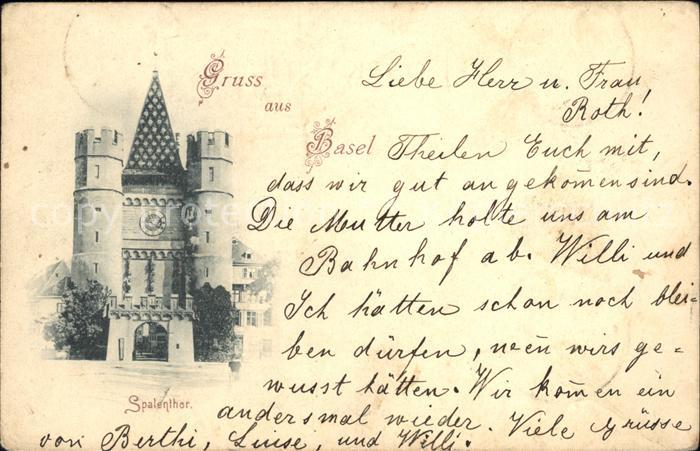 Gruss
aus
Basel
Liebe Herr u. Frau
Roth!
Theilen Euch mit,
dass wir gut angekomen sind.
Die Mutter holte uns am
Bahnhof ab. Willi und
Ich hätten schon noch blei-
ben dürfen, wen wirs ge-
wusst hätten. Wir komen ein
andersmal wieder. Viele Grüsse
von Berthi, Luise, und Willi.
Spalenthor.